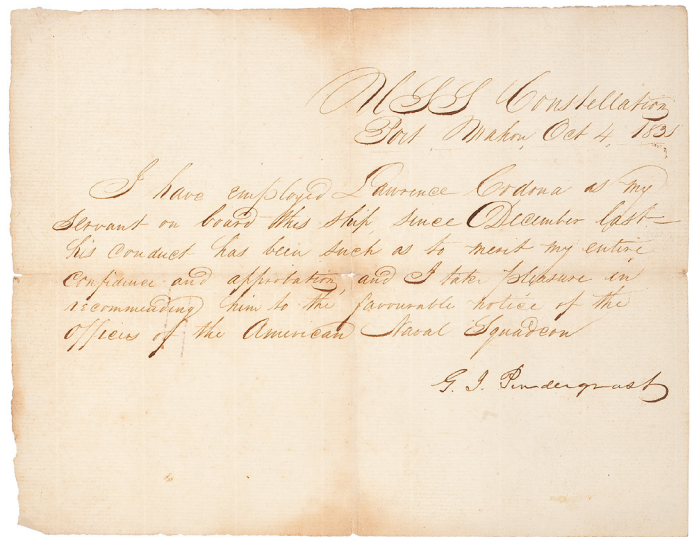 USS Constellation
Port Mahon, Oct 4, 1831
I have employed Lawrence Codona as my
servant on board this ship since December last—
his conduct has been such as to merit my entire
confidence and approbation, and I take pleasure in
recommending him to the favourable notice of the
officers of the American Naval Squadron
G. J. Pendergrast